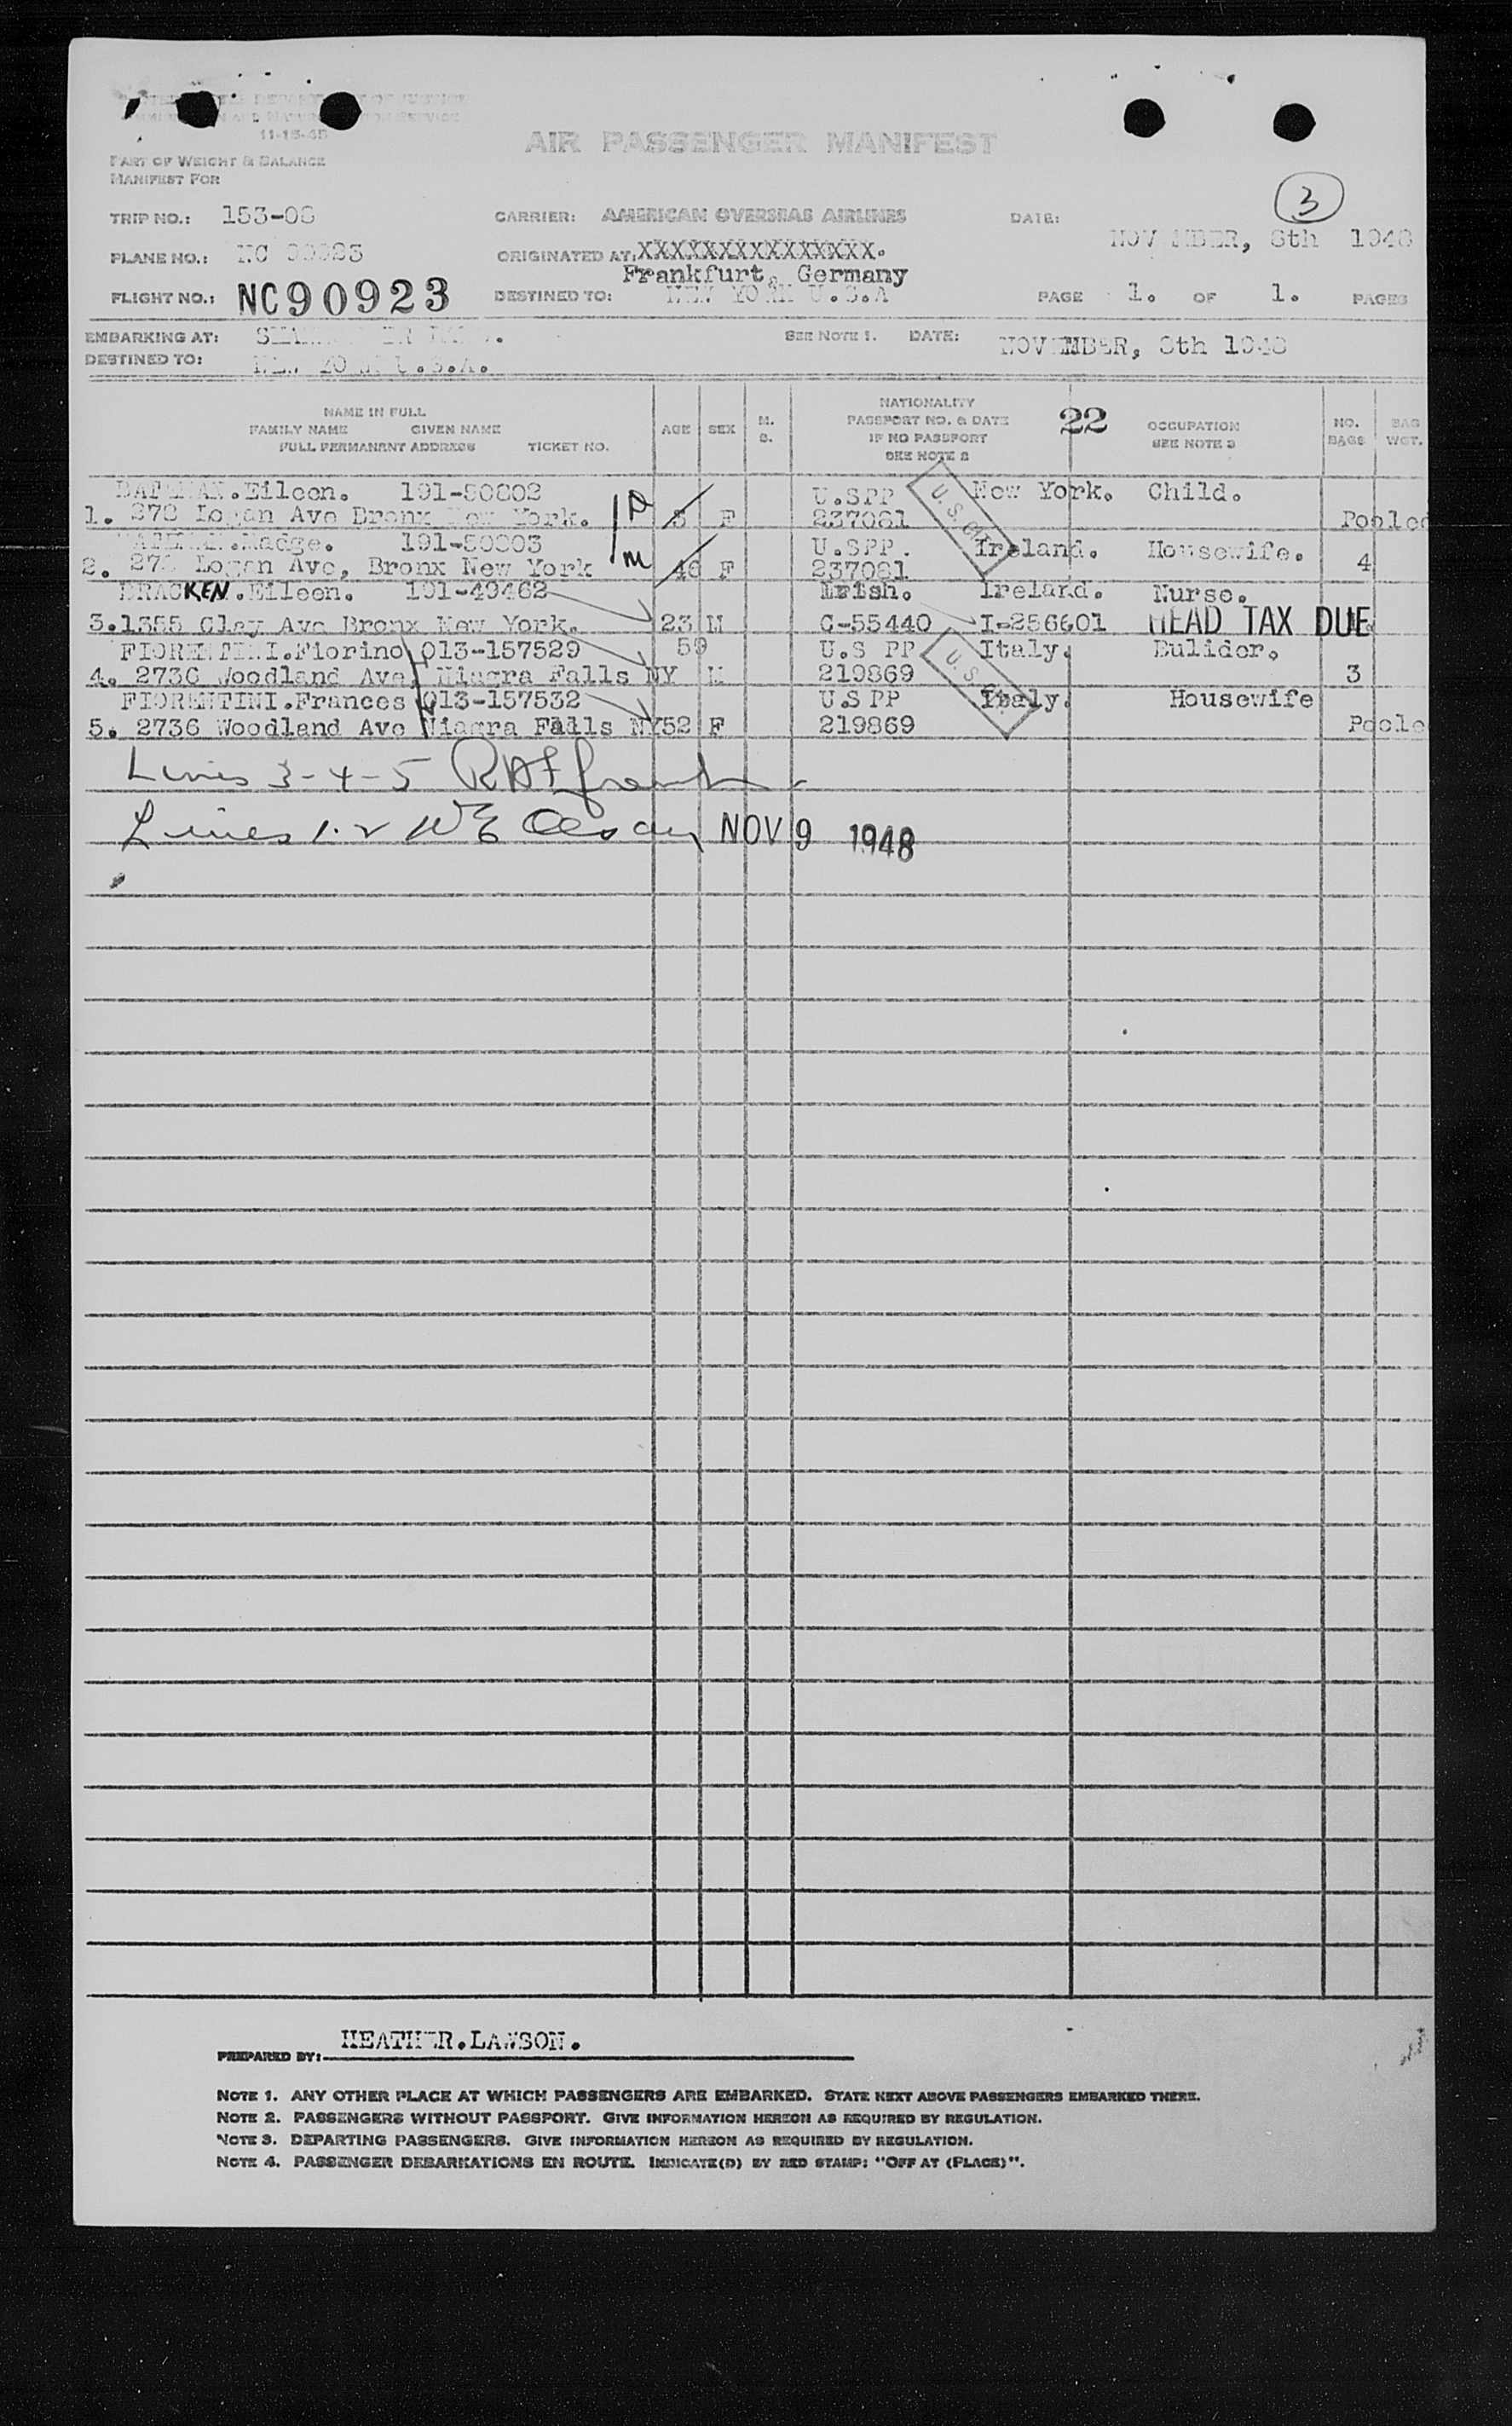 11-15-45
AIR PASSENGER MANIFEST
PART OF WEIGHT & BALANCE
MANIFEST FOR
3
TRIP NO.: 153-08 CARRIER: AMERICAN OVERSEAS AIRLINES DATE:
NOVEMBER, 8th 1948
PLANE NO.: NC 90923 ORIGINATED AT: XXXXXXXXXXXXXXX.
Frankfurt, Germany
FLIGHT NO.: NC90923 DESTINED TO: NEW YORK U.S.A PAGE 1. OF 1. PAGES
EMBARKING AT: SEE NOTE 1. DATE: NOVEMBER, 8th 1948
DESTINED TO: NEW YORK U.S.A.
NAME IN FULL
FAMILY NAME GIVEN NAME
FULL PERMANENT ADDRESS TICKET NO.
AGE SEX M. S.
NATIONALITY
PASSPORT NO. & DATE
IF NO PASSPORT
SEE NOTE 2
22
OCCUPATION
SEE NOTE 3
NO. BAGS
BAG WGT.
BATEMAN.Eileen. 191-50802 U.SPP New York. Child.
1. 278 Logan Ave Bronx New York. F 237081 Pooled
BATEMAN.Madge. 191-50803 U.SPP. Ireland. Housewife.
2. 278 Logan Ave, Bronx New York 46 F 237081 4
BRACKEN.Eileen. 191-49462 Irish. Ireland. Nurse.
3.1355 Clay Ave Bronx New York. 23 M C-55440 I-256601 HEAD TAX DUE
FIORENTINI.Fiorino 013-157529 59 U.S PP Italy. Bulider.
4. 2736 Woodland Ave, Niagra Falls NY M 219869 3
FIORENTINI.Frances 013-157532 U.S PP Italy. Housewife
5. 2736 Woodland Ave Niagra Falls NY 52 F 219869 Poole
Lines 3-4-5
Lines 1.2 NOV 9 1948
PREPARED BY: HEATHER.LAWSON.
NOTE 1. ANY OTHER PLACE AT WHICH PASSENGERS ARE EMBARKED. STATE NEXT ABOVE PASSENGERS EMBARKED THERE.
NOTE 2. PASSENGERS WITHOUT PASSPORT. GIVE INFORMATION HEREON AS REQUIRED BY REGULATION.
NOTE 3. DEPARTING PASSENGERS. GIVE INFORMATION HEREON AS REQUIRED BY REGULATION.
NOTE 4. PASSENGER DEBARKATIONS EN ROUTE. INDICATE(D) BY RED STAMP: "OFF AT (PLACE)".